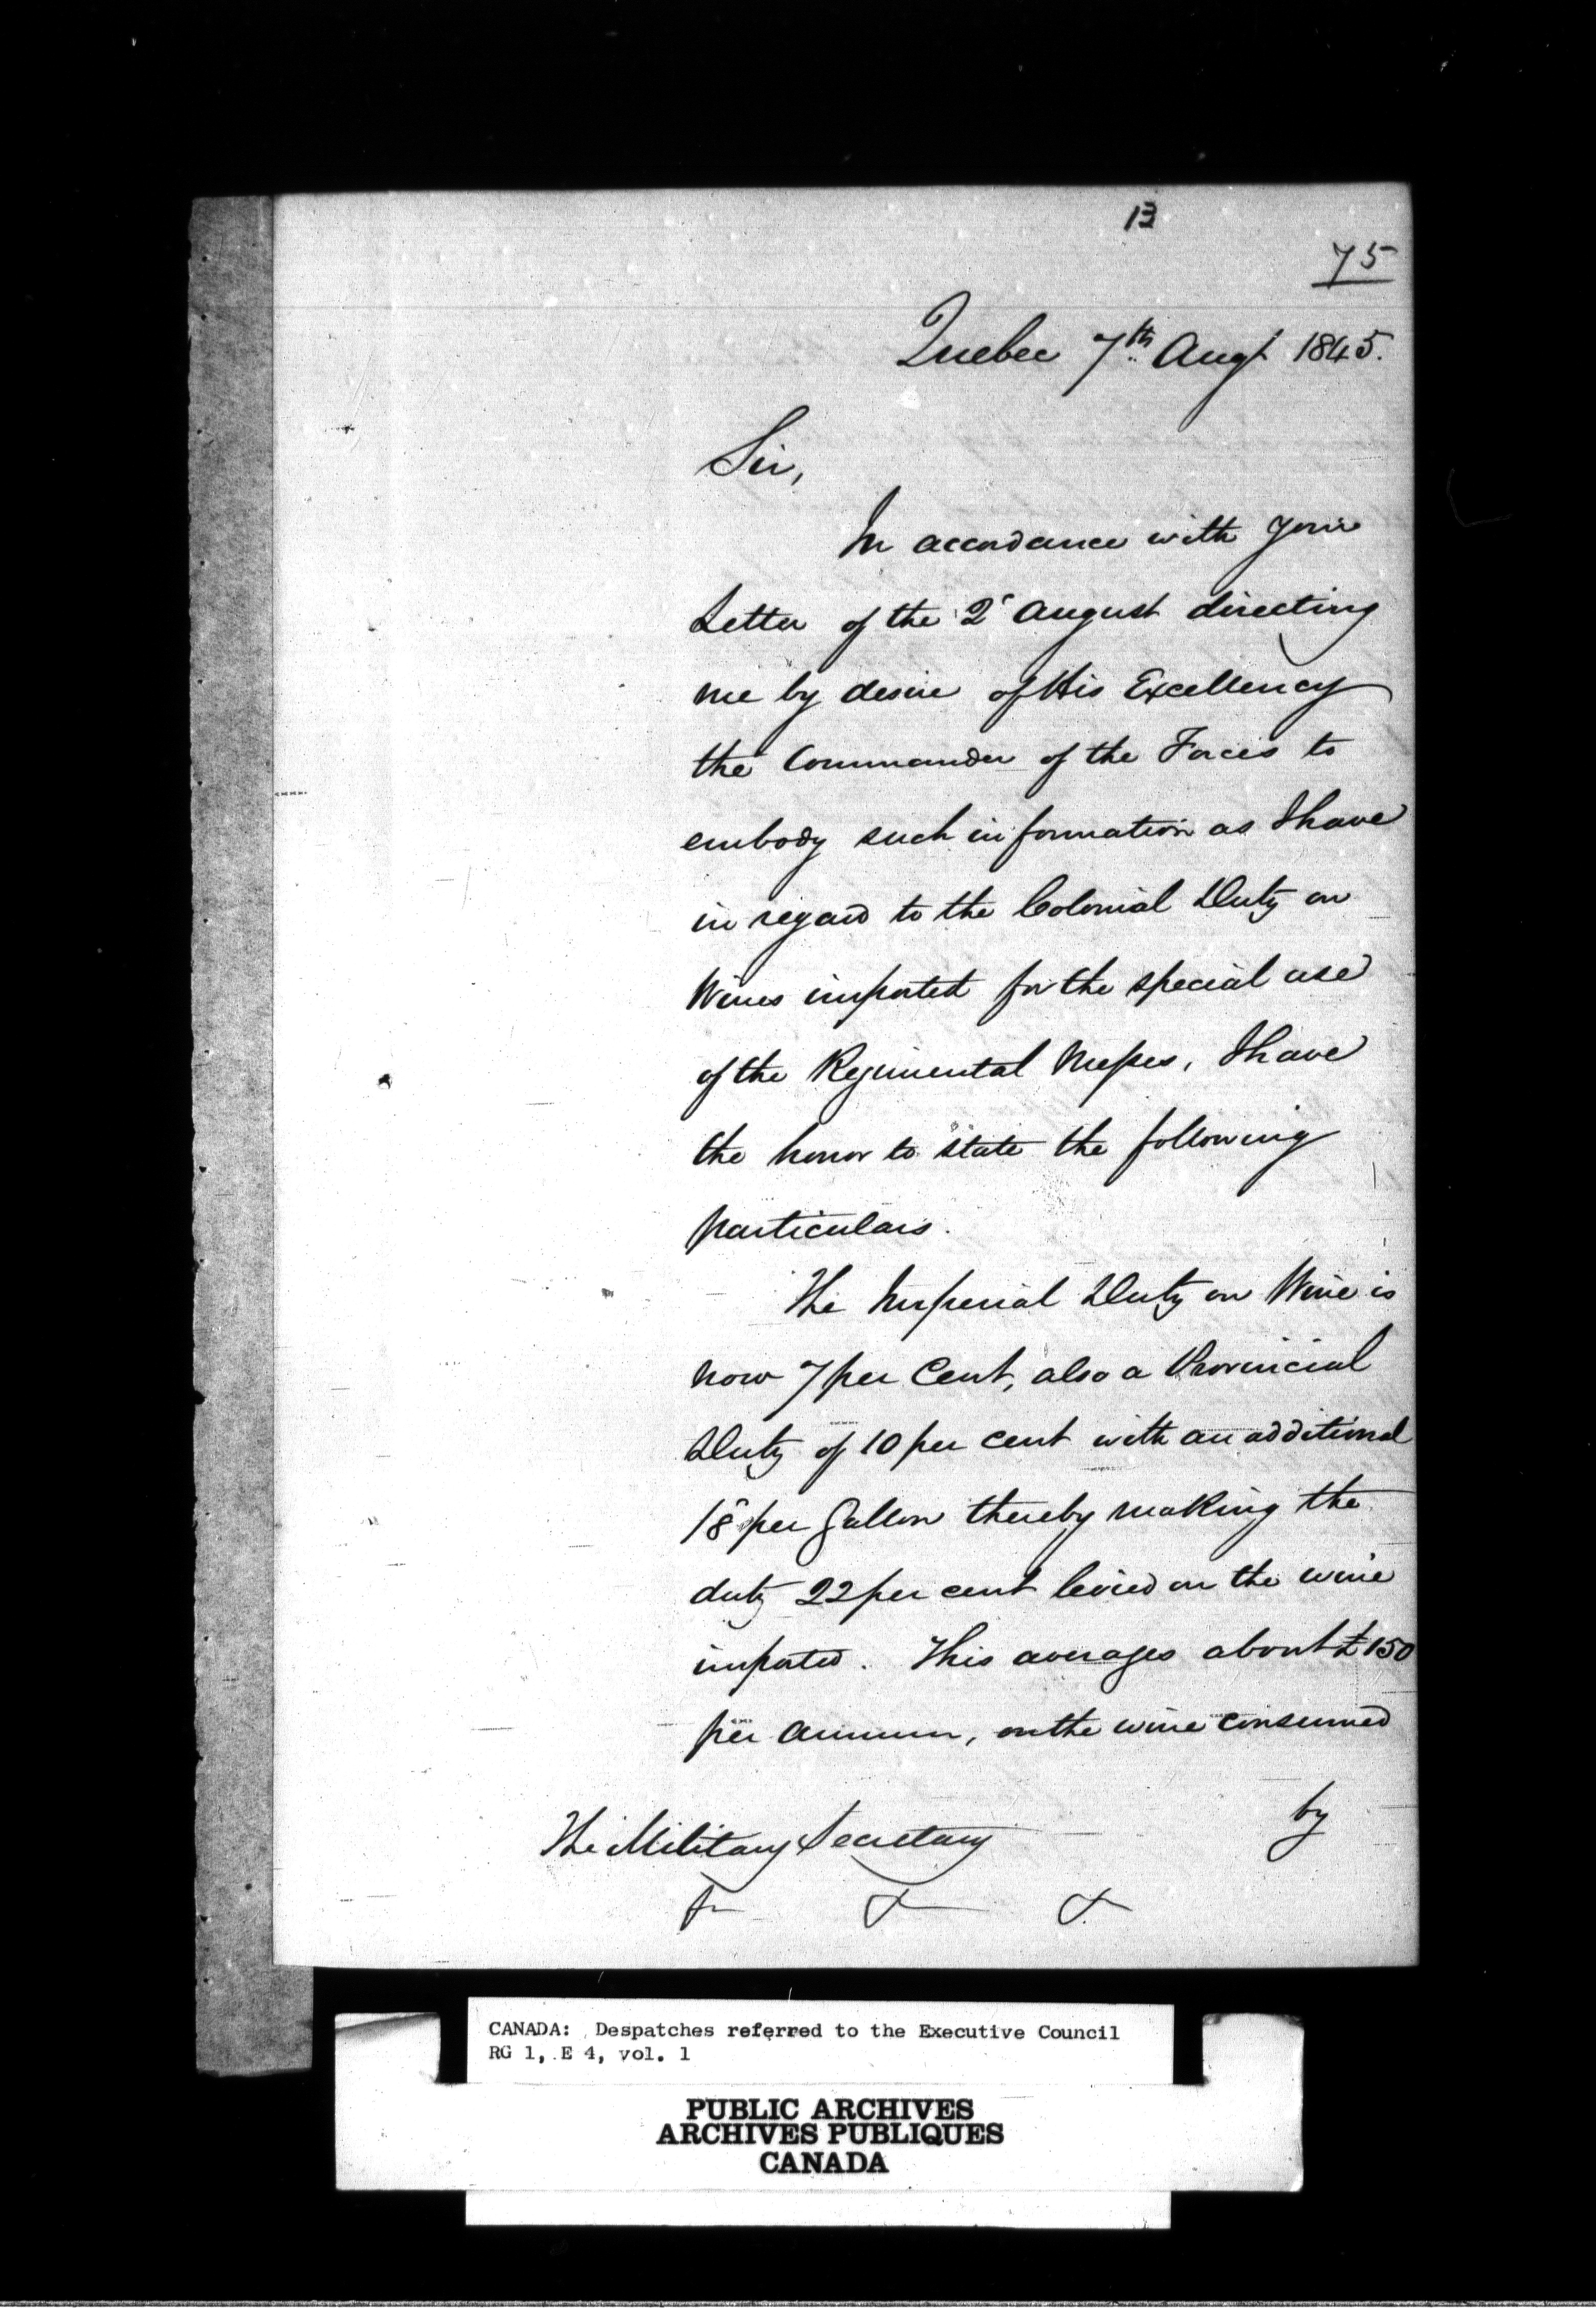 13
75
Quebec 7th Augt 1845.
Sir,
In accordance with your
Letter of the 2d August directing
me by desire of His Excellency
the Commander of the Forces to
embody such information as I have
in regard to the Colonial Duty on
Wines imported for the special use
of the Regimental Messes, I have
the honor to state the following
particulars.
The Imperial Duty on Wine is
now 7 per Cent, also a Provincial
Duty of 10 per cent with an additional
per Gallon thereby making the
duty 22 per cent levied on the wine
imported. This averages about £150
per Annum, on the wine consumed
by
The Military Secretary
& & &
CANADA: Despatches referred to the Executive Council
RG 1, E 4, vol. 1
PUBLIC ARCHIVES
ARCHIVES PUBLIQUES
CANADA